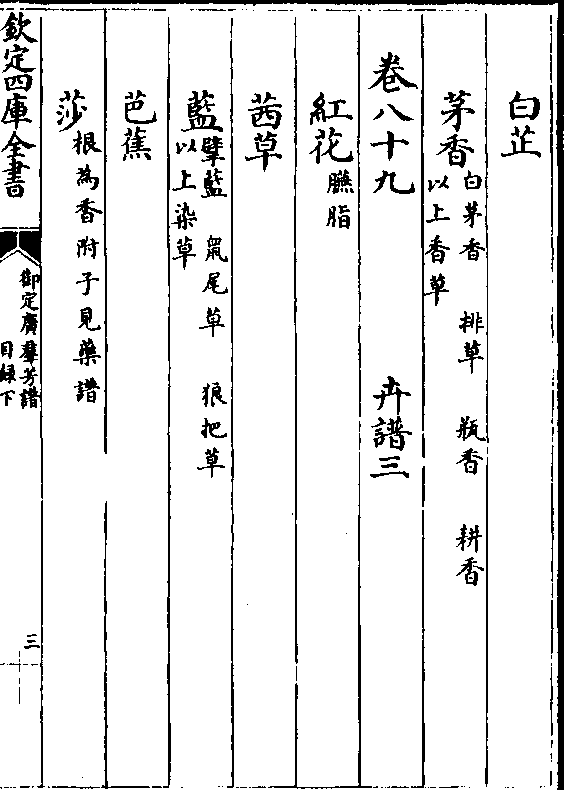 白芷
茅香 白茅香 排草 瓶香 耕香
以上香草
卷八十九 卉譜三
紅花 臙脂
茜草
藍 擘藍 䑕尾草 狼把草
以上染草
芭蕉
莎 根為香附子見藥譜
欽定四庫全書
御定廣羣芳譜
目録下
三